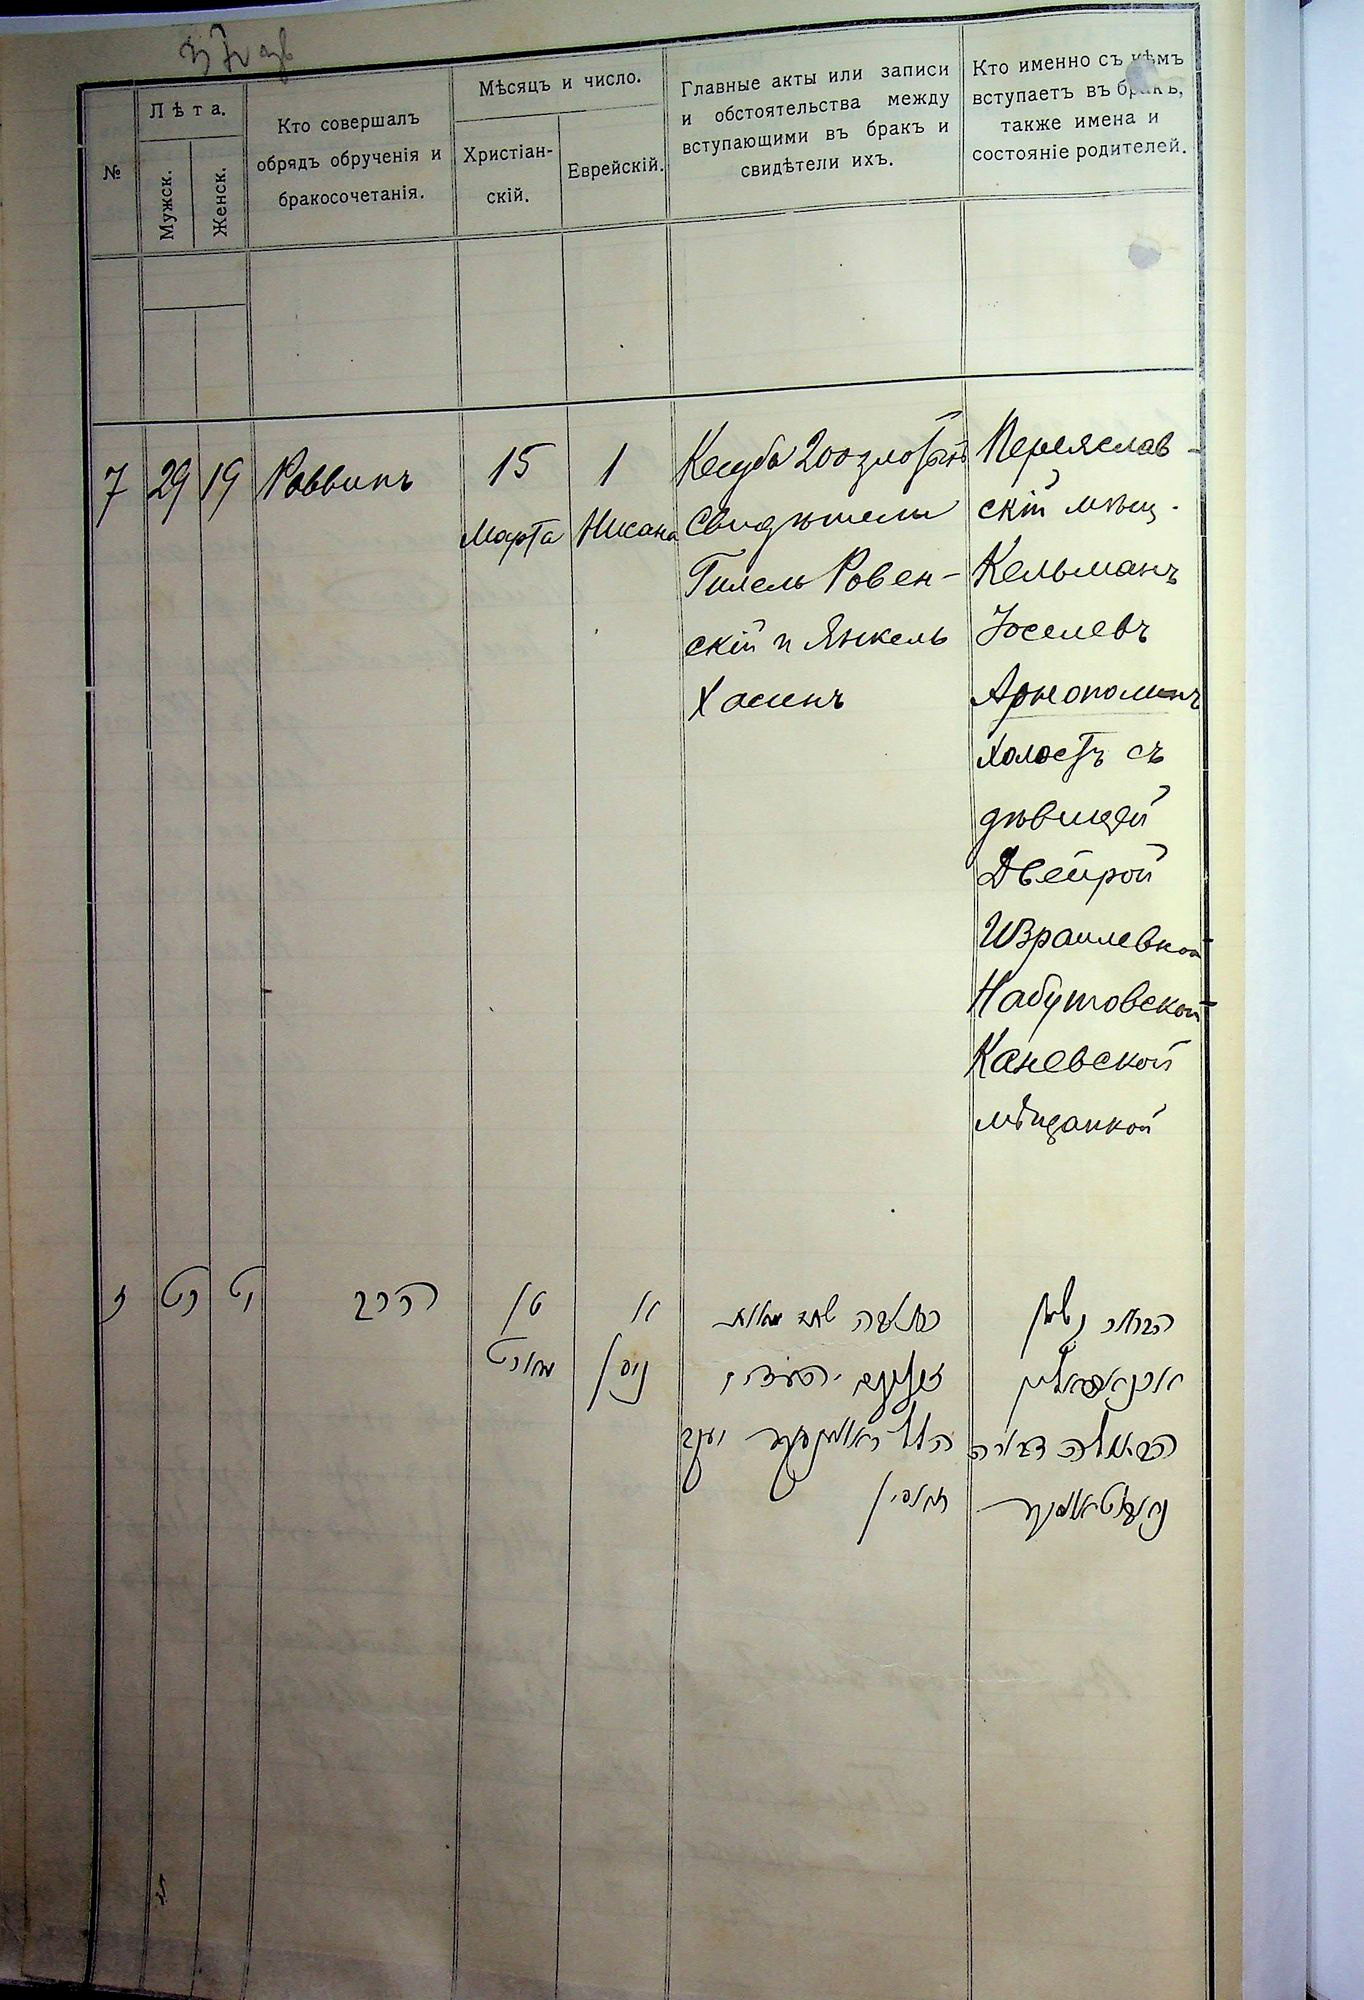 №
Лѣта.
Мужск.
Женск.
Кто совершалъ
обрядъ обрученія и
бракосочетанія.
Мѣсяцъ и число.
Христіан-
скій.
Еврейскій.
Главные акты или записи
и обстоятельства между
вступающими въ бракъ и
свидѣтели ихъ.
Кто именно съ кѣмъ
вступаетъ въ бракъ,
также имена и
состояніе родителей.
7
29
19
Раввинъ
15
Марта
1
Нисана
Кесуба 200 злотыхъ
Свидѣтели
Гилель Ровен-
скій и Янкель
Хасинъ
Переяслав-
скій мѣщ.
Кельманъ
Іоселевъ
Арнополинъ
холостъ съ
дѣвицей
Двейрой
Израилевной
Набутовской
Каневской
мѣщанкой
ז
כט
יט
הרב
טו
מארט
א
ניסן
כתובה
זהובים
הלל
הבתולה דבורה